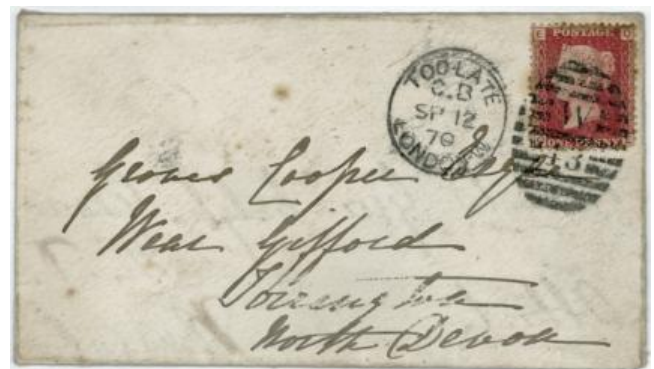 E
POSTAGE
O
TOO-LATE
C.B
SP 12
70
LONDON-W
W
13
Cooper Esqre
Wear Gifford
Torrington
North Devon